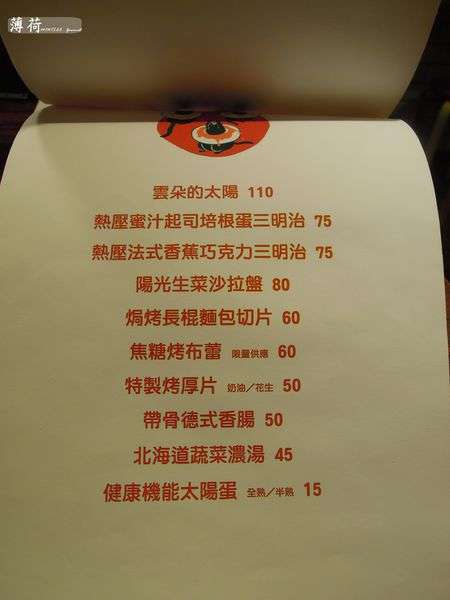 薄荷
雲朵的太陽 110
熱壓蜜汁起司培根蛋三明治 75
熱壓法式香蕉巧克力三明治 75
陽光生菜沙拉盤 80
焗烤長棍麵包切片 60
焦糖烤布蕾 限量供應 60
特製烤厚片 奶油/花生 50
帶骨德式香腸 50
北海道蔬菜濃湯 45
健康機能太陽蛋 全熟/半熟 15